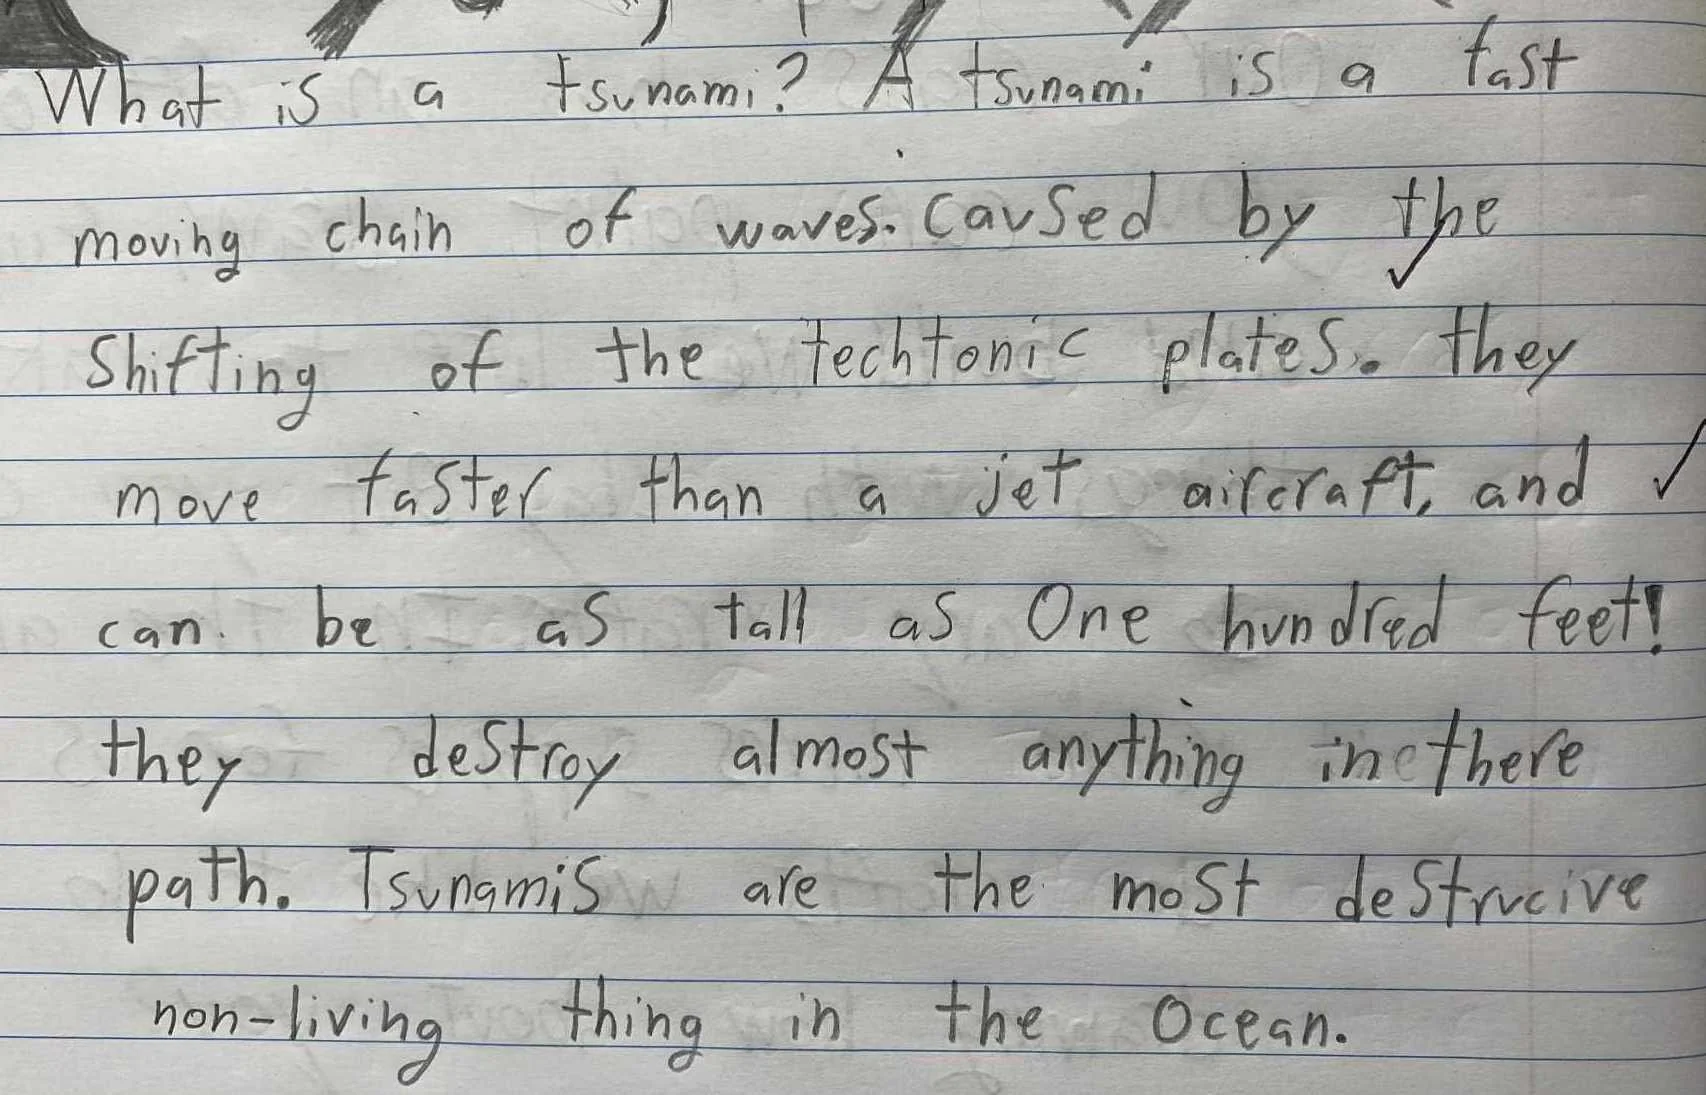 What is a tsunami? A tsunami is a fast
moving chain of waves. Caused by the
Shifting of the techtonic plates. they
move faster than a jet aircraft, and
can be as tall as One hundred feet!
they destroy almost anything in there
path. Tsunamis are the most destrucive
non-living thing in the Ocean.